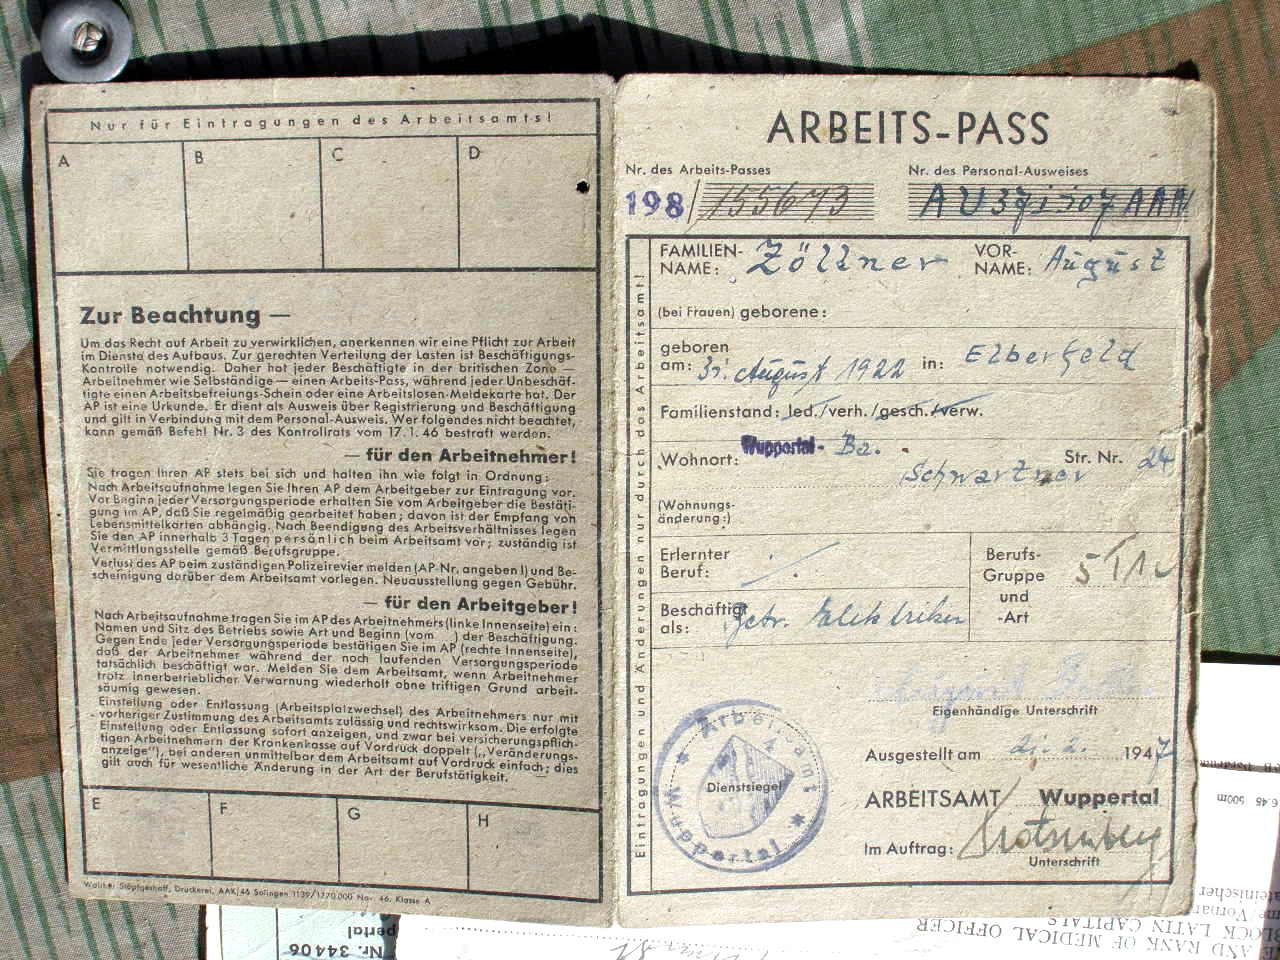 Nur für Eintragungen des Arbeitsamts!
A B C D
Zur Beachtung —
Um das Recht auf Arbeit zu verwirklichen, anerkennen wir eine Pflicht zur Arbeit
im Dienste des Aufbaus. Zur gerechten Verteilung der Lasten ist Beschäftigungs-
Kontrolle notwendig. Daher hat jeder Beschäftigte in der britischen Zone —
Arbeitnehmer wie Selbständige — einen Arbeits-Pass, während jeder Unbeschäf-
tigte einen Arbeitsbefreiungs-Schein oder eine Arbeitslosen-Meldekarte hat. Der
AP ist eine Urkunde. Er dient als Ausweis über Registrierung und Beschäftigung
und gilt in Verbindung mit dem Personal-Ausweis. Wer folgendes nicht beachtet,
kann gemäß Befehl Nr. 3 des Kontrollrats vom 17. 1. 46 bestraft werden.
— für den Arbeitnehmer!
Sie tragen Ihren AP stets bei sich und halten ihn wie folgt in Ordnung:
Nach Arbeitsaufnahme legen Sie Ihren AP dem Arbeitgeber zur Eintragung vor.
Vor Beginn jeder Versorgungsperiode erhalten Sie vom Arbeitgeber die Bestäti-
gung im AP, daß Sie regelmäßig gearbeitet haben; davon ist der Empfang von
Lebensmittelkarten abhängig. Nach Beendigung des Arbeitsverhältnisses legen
Sie den AP innerhalb 3 Tagen persönlich beim Arbeitsamt vor; zuständig ist
Vermittlungsstelle gemäß Berufsgruppe.
Verlust des AP beim zuständigen Polizeirevier melden (AP-Nr. angeben!) und Be-
scheinigung darüber dem Arbeitsamt vorlegen. Neuausstellung gegen Gebühr.
— für den Arbeitgeber!
Nach Arbeitsaufnahme tragen Sie im AP des Arbeitnehmers (linke Innenseite) ein:
Namen und Sitz des Betriebs sowie Art und Beginn (vom ) der Beschäftigung.
Gegen Ende jeder Versorgungsperiode bestätigen Sie im AP (rechte Innenseite),
daß der Arbeitnehmer während der noch laufenden Versorgungsperiode
tatsächlich beschäftigt war. Melden Sie dem Arbeitsamt, wenn Arbeitnehmer
trotz innerbetrieblicher Verwarnung wiederholt ohne triftigen Grund arbeit-
säumig gewesen.
Einstellung oder Entlassung (Arbeitsplatzwechsel) des Arbeitnehmers nur mit
vorheriger Zustimmung des Arbeitsamts zulässig und rechtswirksam. Die erfolgte
Einstellung oder Entlassung sofort anzeigen, und zwar bei versicherungspflich-
tigen Arbeitnehmern der Krankenkasse auf Vordruck doppelt („Veränderungs-
anzeige"), bei anderen unmittelbar dem Arbeitsamt auf Vordruck einfach; dies
gilt auch für wesentliche Änderung in der Art der Berufstätigkeit. —
E F G H
Druckerei, AAK/46 Solingen 1139/1770.000 Nov. 46. Klasse A
ARBEITS-PASS
Nr. des Arbeits-Passes Nr. des Personal-Ausweises
198/155673
Eintragungen und Änderungen nur durch das Arbeitsamt!
FAMILIEN-NAME: Zöllner VOR-NAME: August
(bei Frauen) geborene:
geboren am: 31. August 1922 in: Elberfeld
Familienstand: led./verh./gesch./verw.
Wohnort: Wuppertal- Ba. Str. Nr. 24
(Wohnungs-
änderung:)
Erlernter
Beruf:
Berufs-
Gruppe
und
-Art
Beschäftigt
als: Elektriker
Eigenhändige Unterschrift
Ausgestellt am 21. 2. 1947
ARBEITSAMT Wuppertal
Im Auftrag:
Unterschrift
Arbeitsamt
Dienstsiegel
Wuppertal
Nr. 34406
6.45 500m
AND RANK OF MEDICAL OFFICER
BLOCK LATIN CAPITALS